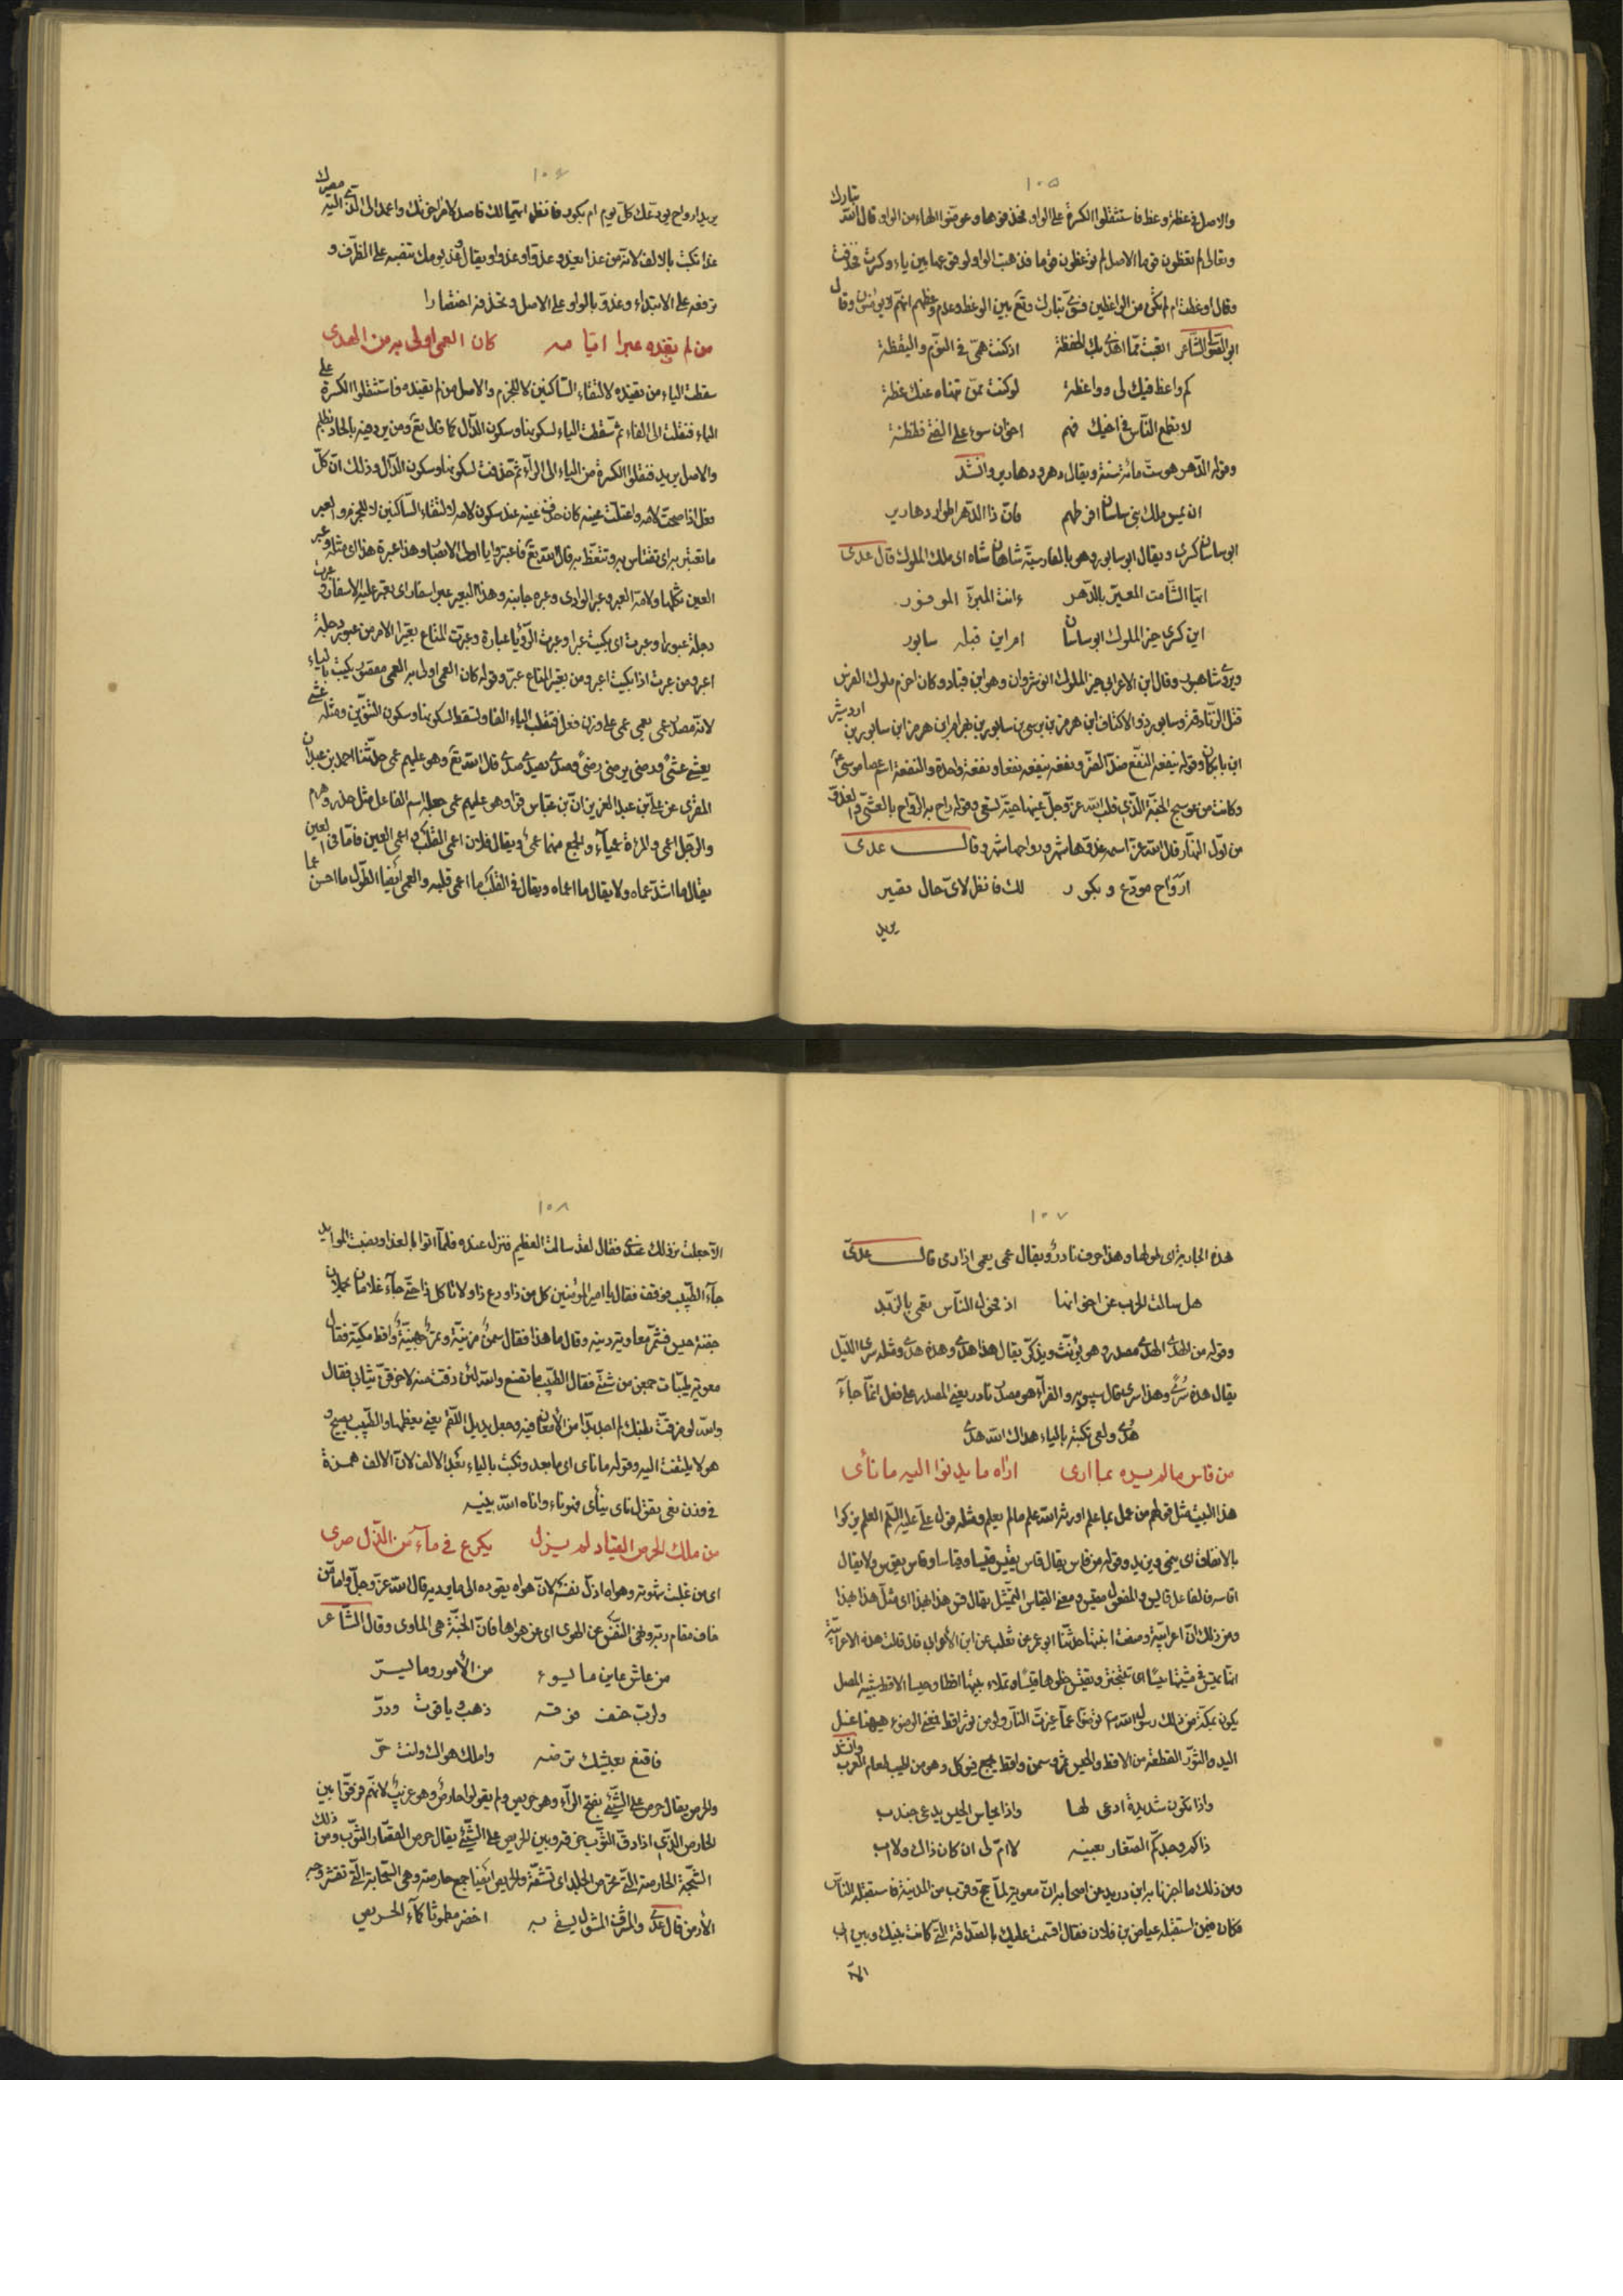 ١٠٥
والاصل في عظة وعظ فاستثقلوا الكسرة على الواو فحذفوها وعوضوا الهاء من الواو قال الله تبارك
وتعالى لم تعظون قوما الاصل لم توعظون قوما فذهبت الواو لوقوعها بين ياء وكسرة فحذفت
وقال اوعظت ام لم تكن من الواعظين فسوى تبارك وتع بين الوعظ وعدم وعظهم انهم لا يؤمنون وقال
ابو القسم الشاعر اتعبت مما اهلك بك للحفظة اذ كنت همي في النوم واليقظة
كم واعظ فيك لي وواعظة لو كنت ممن تنهاه عنك عظة
لا تطمع الناس في اخيك فهم اخوان سوء على الفتى فظظة
وقوله الدهر هو ست مائة سنة ويقال دهر ودهارير وانشد
ان يمس ملك بني ساسان افرطهم فان ذا الدهر اطوار دهارير
ابو ساسان كسرى ويقال ابو سابور وهو بالفارسية شاهان شاه اى ملك الملوك قال عدى
ايها الشامت المعير بالدهر ءانت المبرة الموفور
اين كسرى خير الملوك ابو ساسان ام اين قبله سابور
ويروى شاهبور وقال ابن الاعرابي خير الملوك انوشروان وهو ابن قباد وكان احزم ملوك الفرس
قتل الزنادقة وسابور ذو الاكتاف ابن هرمز بن نرسى بن سابور بن بهرام ابن هرمز ابن سابور بن اردشير
ابن بابكان وقوله ينفعه النفع ضد الضر ونفعه ينفعه نفعا ونفعة واحدة والنفعة اسم عصا موسى
وكانت من عوسج الجنة الذى قلب الله عز وجل عينها حية تسعى وقوله راح به الرواح بالعشي والغدو
من اول النهار قال الله عز اسمه غدوها شهر ورواحها شهر وقال عدى
ارواح مودع وبكور لك فانظر لاى حال تصير
يريد
١٠٦
يريد ارواح يودعك كل يوم ام بكور فانظر ايهما لك فاصلا لامر اخرتك واعمد الى الذى اليه مصيرك
غدا تكتب بالالف لانه من غدا يغدو غدوا وغدوا ويقال وغد يومك تنصبه على الظرف و
ترفعه على الابتداء وغدو بالواو على الاصل وتحذفه اختصارا
من لم تفده عبرا ايامه كان العمى اولى به من الهدى
سقطت الياء من تفيده لالتقاء الساكنين لا للجزم والاصل من لم تفيده فاستثقلوا الكسرة على
الياء فنقلت الى الفاء ثم سقطت الياء لسكونها وسكون الدال كما قال تع ومن يرد فيه بالحاد بظلم
والاصل يريد فنقلوا الكسرة من الياء الى الراء ثم حذفت لسكونها وسكون الدال وذلك ان كل
فعل اذا صحت لامه واعتلت عينه كان حذف عينه عند سكون لامه لالتقاء الساكنين لا للجزم والعبر
ما تعتبر به اى تقتاس به وتتعظ به قال الله تع فاعتبروا يا اولى الابصار وهذا عبرة هذا اى مثله وعبر
العين ثكلها ولامه العبر وعبر الوادى وعبره جانبه وهذا البعير عبر اسفار اى يعبر عليه الاسفار وعبرت
دجلة عبورا وعبرت اى بكيت عبرا وعبرت الرؤيا عبارة وعبرت المتاع بغير الامر من عبور دجلة
اعبر ومن عبرت اذا بكيت اعبر ومن بغير المتاع عبر وقوله كان العمى اولى به العمى مقصور يكتب بالياء
لانه مصدر عمى يعمى عمى على وزن فعل فتقلب الياء الفا وتسقط لسكونها وسكون التنوين ومثله عشى
يعشى عشى ورضى يرضى رضى وصدى يصدى صدى قال الله تع وهو عليهم عمى حدثنا احمد بن عبدان
المقرى عن على بن عبد العزيز ان بن عباس قرا وهو عليهم عمى جعله اسم الفاعل مثل حذر وهرم
والرجل اعمى والمراة عمياء والجمع منهما عمى ويقال فلان اعمى القلب واعمى العين فاما في العين
يقال ما اشد عماه ولا يقال ما اعماه ويقال في القلب ما اعمى قلبه والعمى ايضا الطول ما احسن عما
١٠٧
هذه الجارية اى طولها وهذا حرف نادر ويقال عمى يعمى اذا رمى قال عدى
هل سالت الحرب عن اخوانها اذ تحول الناس تعمى بالزبد
وقوله من الهدى الهدى مصدر وهو يؤنث ويذكر يقال هذا هدى وهذه هدى ومثله سرى الليل
يقال هذه سرى وهذا سرى قال سيبويه والفراء هو مصدر نادر يعنى المصدر على فعل انما جاء
هدى ولقى تكتبه بالياء هداك الله هدى
من قاس ما لم يره بما ارى اراه ما يدنوا اليه ما نأى
هذا البيت مثل قولهم من عمل بما علم اورثه الله علم ما لم يعلم ومثله قول على عليه السلم العلم يزكوا
بالانفاق اى ينمى ويزيد وقوله من قاس يقال قاس يقيس قيسا وقياسا وقاس يقوس ولا يقال
اقاسه فالفاعل قايس والمفعول مقيس ومعنى القياس التمثيل يقال قس هذا بهذا اى مثل هذا بهذا
ومن ذلك ان اعرابية وصفت ابنتها حدثنا ابو عمر عن ثعلب عن ابن الاعرابى قال قالت هذه الاعرابية
انها تميس في مشيتها ميسا اى تتبختر وتقيس خطوها قيسا وتملاء بيتها اقطا وحيسا الاقط يشبه المصل
يكون بمكة من ذلك رسول الله ص توضوا مما غيرت النار ولو من ثور اقط فمعنى الوضوء هيهنا غسل
اليد والثور القطعة من الاقط والحيس تمر وسمن واقط يجمع فيوكل وهو من اطيب طعام العرب وانشد
واذا تكون شديدة ادعى لها واذا يحاس الحيس يدعى جندب
ذاكم وجدكم الصغار بعينه لا ام لى ان كان ذاك ولا اب
ومن ذلك ما اخبرنا به ابن دريد عن اصحابه ان معوية لما حج وقرب من المدينة فاستقبله الناس
فكان فيمن استقبله عياض بن فلان فقال اقسمت عليك بالصداقة التى كانت بينك وبين ابى
الا
١٠٨
الا جعلت نزلك عندى فقال لقد سالت العظيم فنزل عنده فلما اتوا بالغداء ونصبت الموايد
جاء الطبيب فوقف فقال يا امير المؤمنين كل من ذا ودع ذا ولا تاكل ذا حتى جاء غلامان يحملان
جفنة حيس فشمر معاوية ردينه وقال ما هذا فقال سمن مزينة وتمر جهينة واقط مكية فقال
معوية طيبات جمعن من شتى فقال الطبيب ما تصنع والله لئن ذقت منه لاخرقن ثيابى فقال
والله لو مزقت بطنك لم اجد بدا من الامعان فيه وجعل يدبل اللقم يعنى يعظمها والطبيب يصيح و
هو لا يلتفت اليه وقوله ما نأى اى ما بعد وتكتب بالياء بعد الالف لان الالف همزة
في وزن نعى يقول نأى ينأى فهو ناء واناه الله ينيه
من ملك الحرص القياد لم يزل يكرع في ماء من الذل صرى
اى من غلبت شهوته وهواه اذل نفسه لان هواه يقوده الى ما يرديه قال الله عز وجل واما من
خاف مقام ربه ونهى النفس عن الهوى اى عن هواها فان الجنة هى الماوى وقال الشاعر
من عاش عاين ما يسوء من الامور وما يسر
ولرب حتف فوقه ذهب وياقوت ودر
فاقنع بعيشك ترضه واملك هواك وانت حر
والحرص يقال حرص على الشئ بفتح الراء وهو حريص ولم يقولوا حارص وهو غريب لانهم فرقوا بين
الحارص الذى اذا دق الثوب خرقه وبين الحريص على الشئ يقال حرص القصار الثوب ومن ذلك
الشجة الحارصة التى تحرص الجلد اى تشقه والحريص ايضا جمع حارصة وهى السحابة التى تقشر وجه
الارض قال عدى والمشرف المشمول يسقى به اخضر مطموثا كماء الحريص